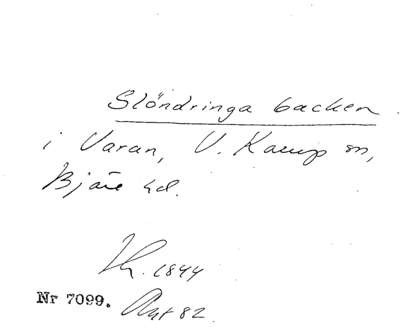 Slöndringa backen
i Varan, V. Karup sn,
Bjäre hd.
1844
Nr 7099. Akt 82